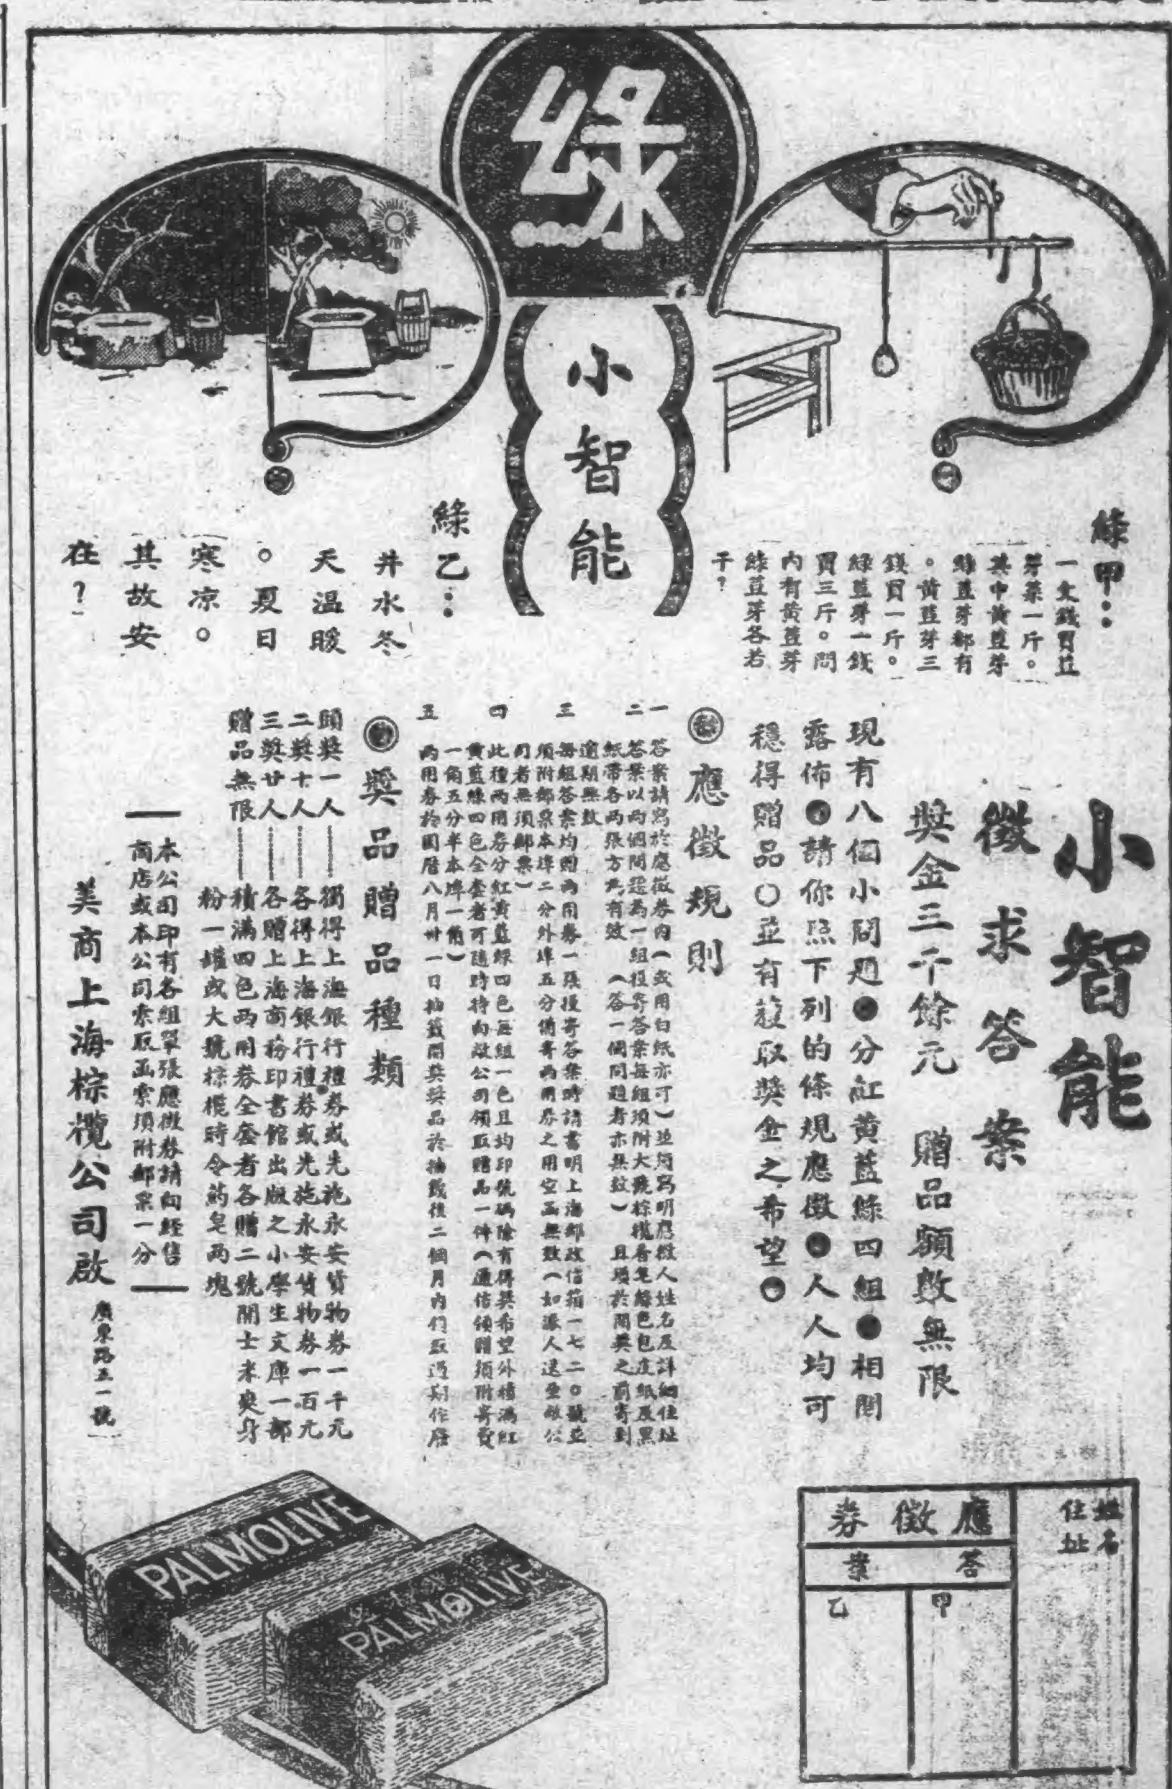 綠
小智能
綠甲：
一文錢買荳
芽菜一斤。
其中黃荳芽
綠荳芽都有
。黃荳芽三
錢買一斤。
綠荳芽一錢
買三斤。問
內有黃荳芽
綠荳芽各若
干？
綠乙：
井水冬
天溫暖
。夏日
寒凉。
其故安
在？
小智能
徵求答案
獎金三千餘元　贈品額數無限
現有八個小問題●分紅黃藍綠四組●相間
露佈●請你照下列的條規應徵●人人均可
穩得贈品○並有獲取獎金之希望●
應徵規則
一　答案請寫於應徵券內（或用白紙亦可）並須寫明應徵人姓名及詳細住址
二　答案以兩個問題為一組投寄答案每組須附大號棕欖香皂綠色包皮紙及黑
紙帶各兩張方為有效　（答一個問題者亦無效）　且須於開獎之前寄到
逾期無效
三　每組答案均贈兩用券一張投寄答案時請書明上海郵政信箱一七二〇號並
須附郵票本埠二分外埠五分備寄兩用券之用空函無效（如派人送至敝公
司者無須郵票）
四　此種兩用券分紅黃藍綠四色每組一色且均印號碼除有得獎希望外積滿紅
黃藍綠四色全套者可隨時持向敝公司領取贈品一件（通信領贈須附寄費
一角五分半本埠一角）
五　兩用券於國曆八月卅一日抽籤開獎獎品於抽籤後二個月內領取過期作廢
獎品贈品種類
頭獎一人……獨得上海銀行禮券或先施永安貨物券一千元
二獎十人……各得上海銀行禮券或先施永安貨物券一百元
三獎廿人……各贈上海商務印書館出版之小學生文庫一部
贈品無限……積滿四色兩用券全套者各贈二號開士米爽身
粉一罐或大號棕欖時令葯皂兩塊
本公司印有各組單張應徵券請向經售
商店或本公司索取函索須附郵票一分
美商上海棕欖公司啟　廣東路五一號
姓名
住址
應徵券
答案
甲
乙
PALMOLIVE
PALMOLIVE